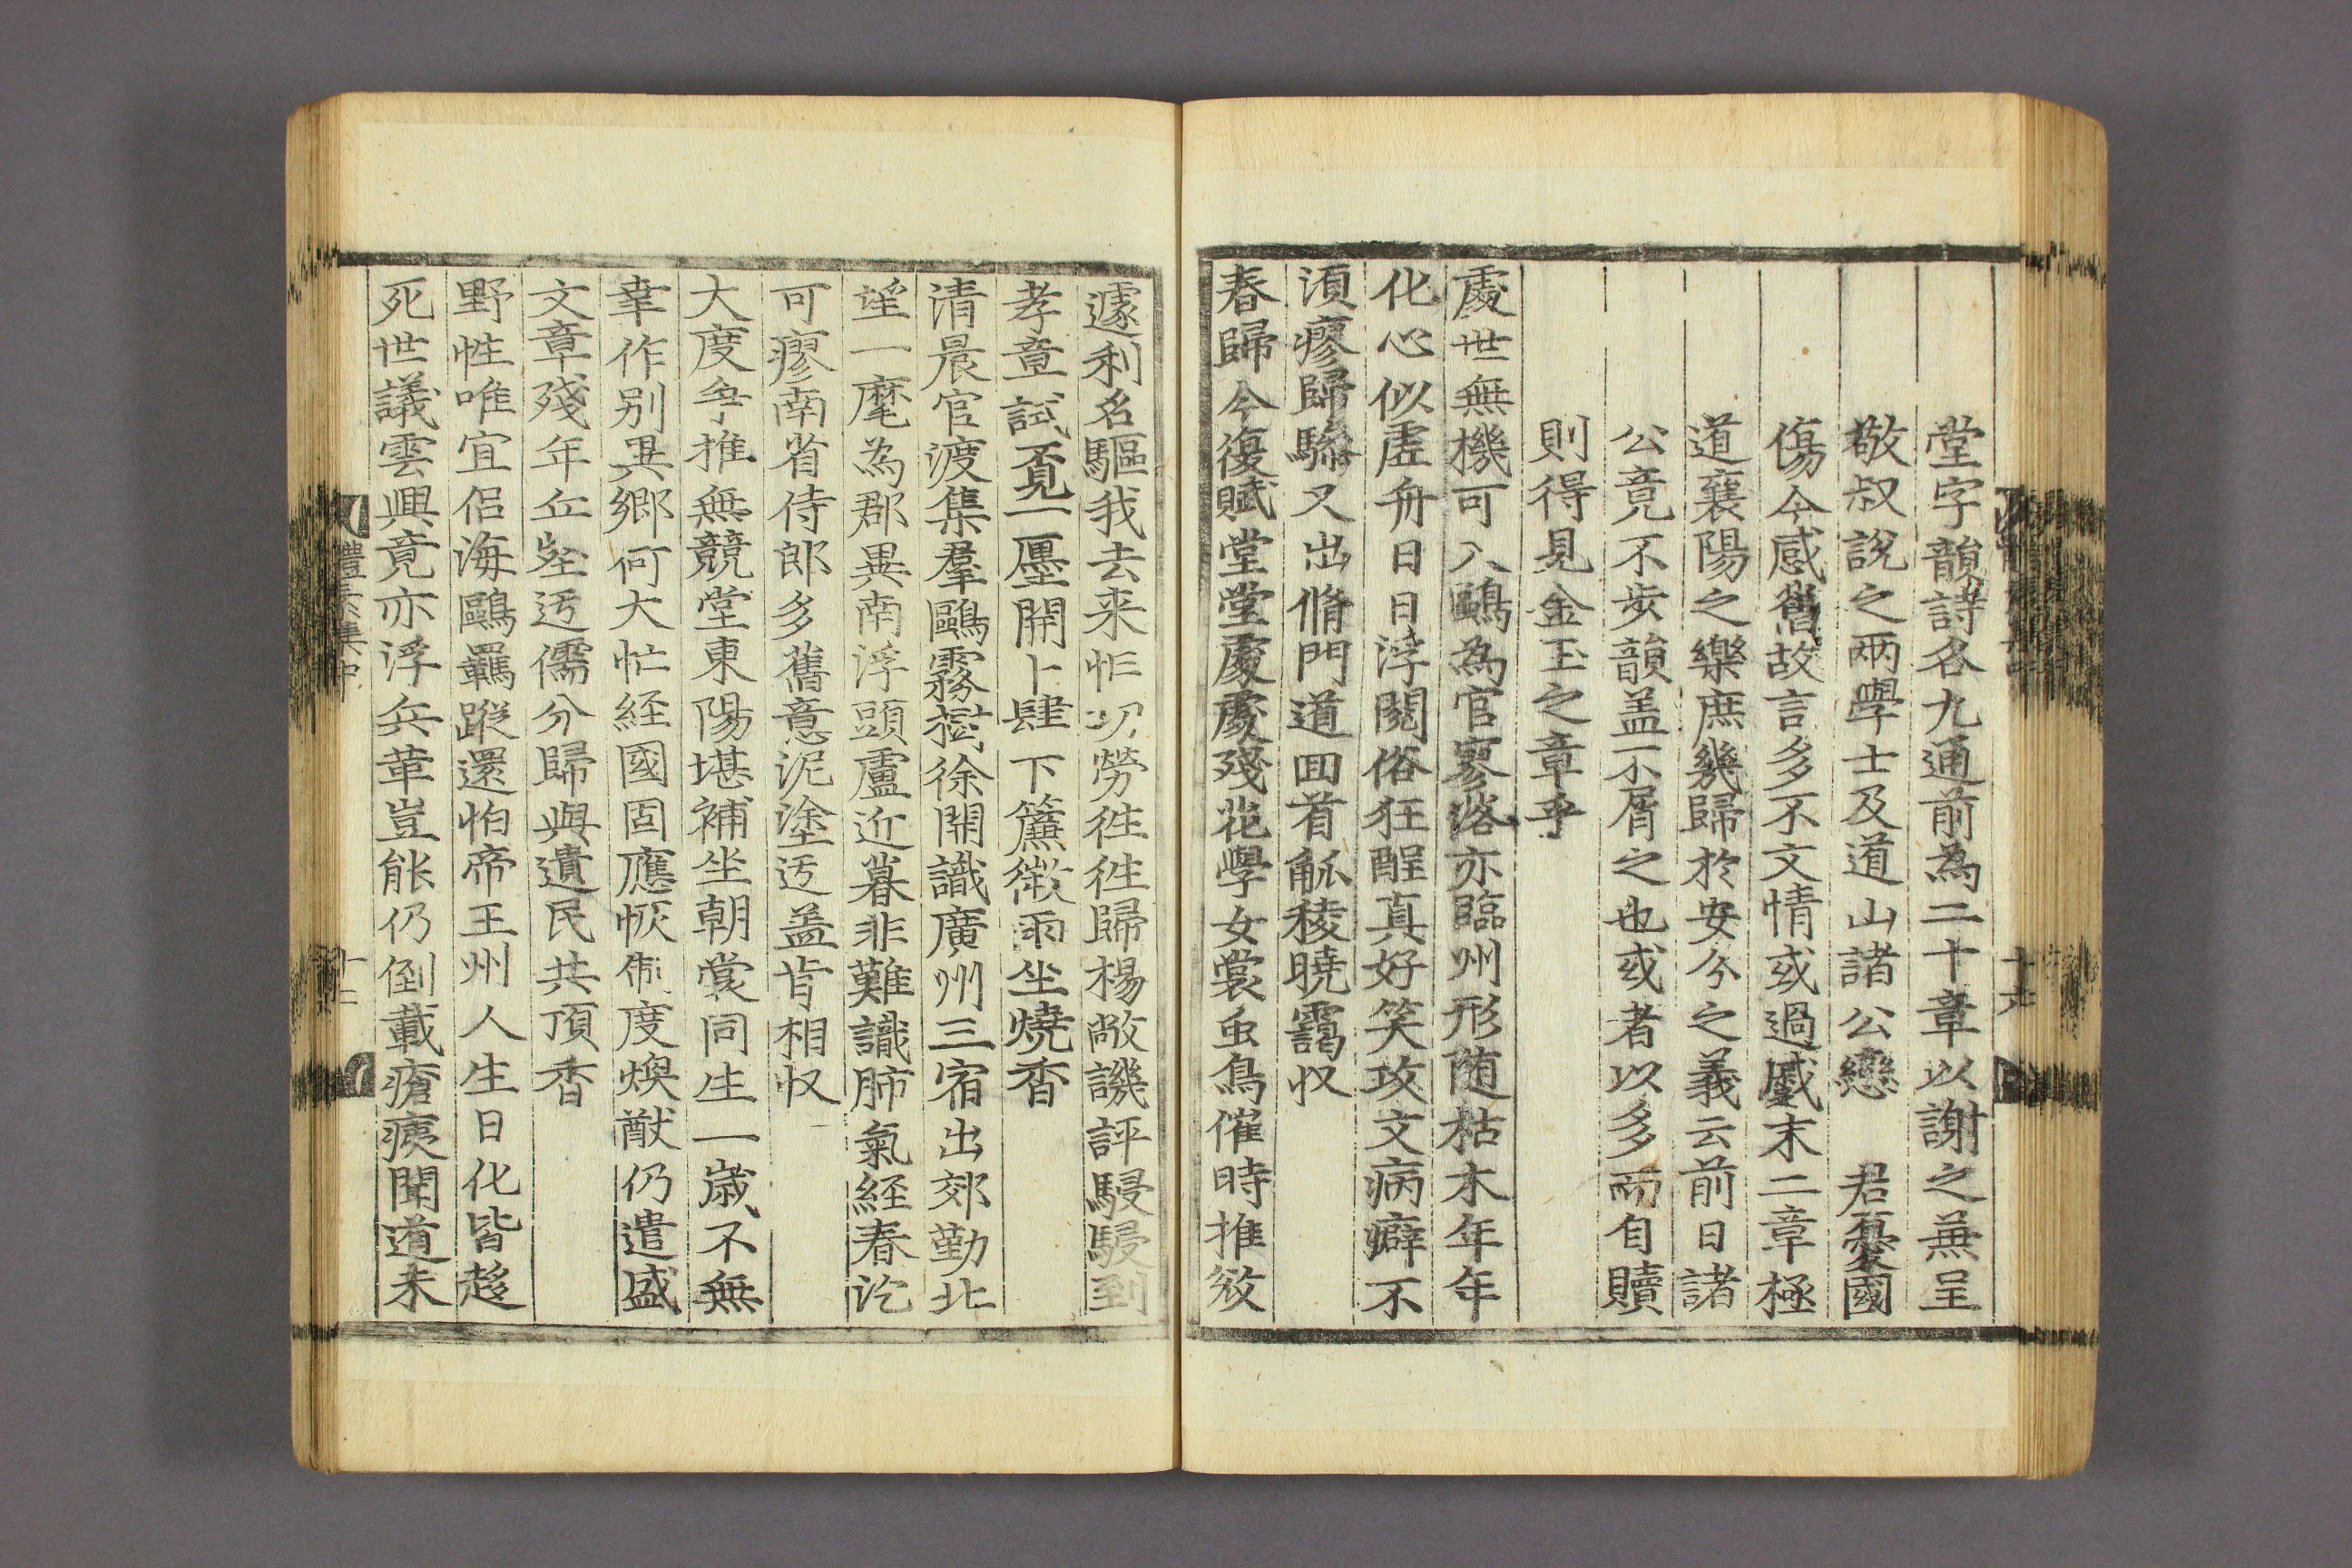 堂字韻詩各九通前為二十章以謝之兼呈
敬叔說之兩學士及道山諸公戀 君憂國
傷今感舊故言多不文情或過慼末二章極
道襄陽之樂庶幾歸於安分之義云前日諸
公竟不步韻盖不屑之也或者以多而自贖
則得見金玉之章乎
處世無機可入鷗為官寥落亦臨州形随枯木年年
化心似虛舟日日浮閱俗狂酲真好笑攻文病癖不
須瘳歸驂又出脩門道回首觚稜曉靄収
春歸今復賦堂堂處處殘花學女裳虫鳥催時推
遽利名驅我去来忙功勞徃徃歸楊敞譏評駸駸到
孝章試覔一廛開卜肆下簾微雨坐燒香
清晨官渡集羣鷗霧樹徐開識廣州三宿出郊勤北
望一麾為郡異南浮頭盧近暮非難識肺氣經春訖
可瘳南省侍郎多舊意泥塗迃盖肯相収
大度爭推無競堂東陽堪補坐朝裳同生一歲不無
幸作别異鄉何大忙経國固應恢制度煥猷仍遣盛
文章殘年丘壑迃儒分歸與遺民共頂香
野性唯宜侶海鷗羈蹤還怕帝王州人生日化皆趍
死世議雲興竟亦浮兵革豈能仍倒載瘡痍聞道未
體素集中
十二